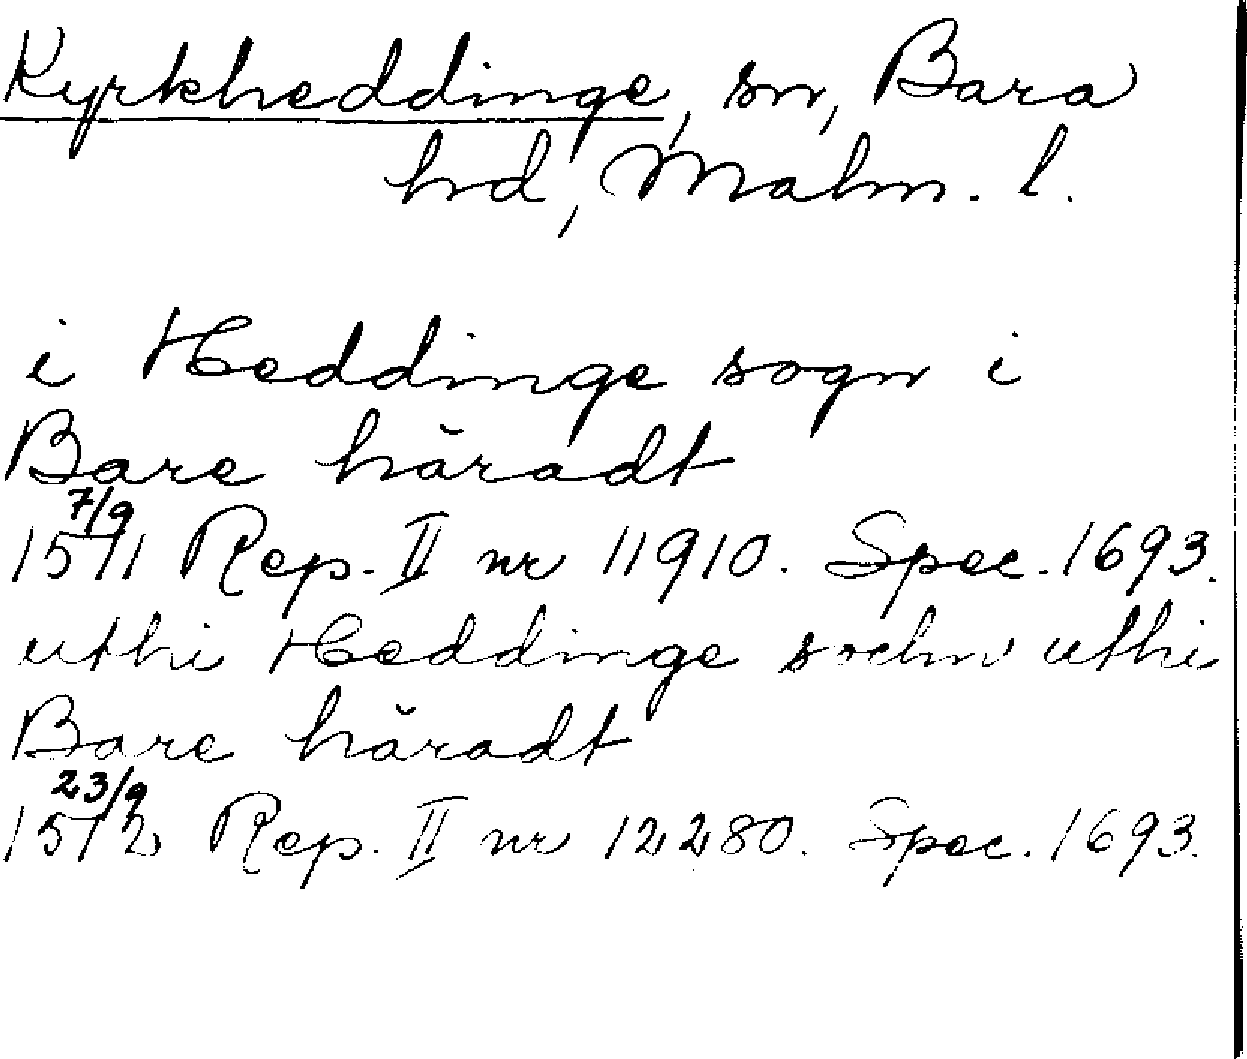 Kyrkheddinge, sn, Bara
hd, Malm. l.
i Heddinge sogn i
Bare häradt
7/9
1571 Rep. II nr 11910. Spec. 1693.
uthi Heddinge sochn uthi
Bare häradt
23/9
1572 Rep. II nr 12280. Spec. 1693.